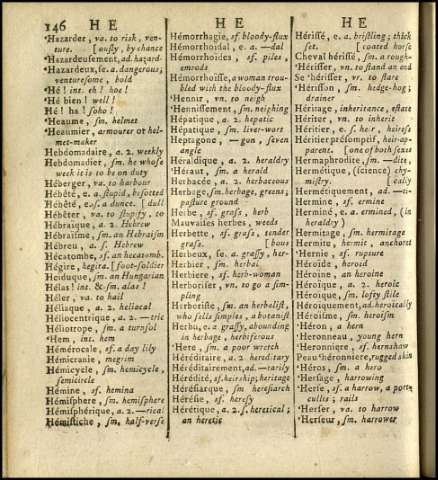 146 H E
H E
H E
*Hazarder, va. to risk, ven-
ture. [ously, by chance
*Hazardeusement, ad. hazard-
*Hazardeux, se. a. dangerous;
venturesome, bold
*Hé! int. eh? hoe!
*Hé bien! well!
Hé! ha! soho!
*Heaume, sm. helmet
*Heaumier, armourer ot hel-
met-maker
Hebdomadaire, a. 2. weekly
Hebdomadier, sm. he whose
week it is to be on duty
Héberger, va. to harbour
Hébêté, e. a. stupid, besotted
Hébêté, e. s. a dunce. [dull
Hébêter, va. to stupify, to
Hébraïque, a. 2. Hebrew
Hébraïsme, sm. an Hebraism
Hébreu, a. s. Hebrew
Hécatombe, sf. an hecatomb.
Hégire, hegira. [foot-soldier
Heiduque, sm. an Hungarian
Hélas! int. & sm. alas!
Héler, va. to hail
Héliaque, a. 2. heliacal
Héliocentrique, a. 2. —tric
Héliotrope, sm. a turnsol
*Hem, int. hem
Hémérocale, sf. a day lily
Hémicranie, megrim
Hémicycle, sm. hemicycle,
semicircle
Hémine, sf. hemina
Hémisphere, sm. hemisphere
Hémisphérique, a. 2. —rical
Hémistiche, sm. half-verse
Hémorrhagie, sf. bloody-flux
Hémorrhoïdal, e. a. —dal
Hémorrhoïdes, sf. piles,
emrods
Hémorrhoïsse, a woman trou-
bled with the bloody-flux
*Hennir, vn. to neigh
*Hennissement, sm. neighing
Hépatique, a. 2. hepatic
Hépatique, sm. liver-wort
Heptagone, —gon, seven
angle
Heraldique, a. 2. heraldry
*Héraut, sm. a herald
Herbacée, a. 2. herbaceous
Herbage, sm. herbage, greens;
pasture ground
Herbe, sf. grass, herb
Mauvaises herbes, weeds
Herbette, sf. grass, tender
grass. [bous
Herbeux, se. a. grassy, her-
Herbier, sm. herbal
Herbiere, sf. herb-woman
Herboriser, vn. to go a sim-
pling
Herboriste, sm. an herbalist,
who sells simples, a botanist
Herbu, e. a. grassy, abounding
in herbage, herbiferous
*Here, sm. a poor wretch
Héréditaire, a. 2 hereditary
Héréditairement, ad. —tarily
Hérédité, sf. heirship; heritage
Hérésiarque, sm. heresiarch
Hérésie, sf. heresy
Hérétique, a. 2. s. heretical;
an heretic
Hérissé, e. a. bristling; thick
set. [coated horse
Cheval hérissé, sm. a rough-
*Hérisser, vn. to stand an end
Se *hérisser, vr. to stare
*Hérisson, sm. hedge-hog;
drainer
Héritage, inheritance, estate
Hériter, vn. to inherit
Héritier, e. s. heir, heiress
Héritier présomptif, heir-ap-
parent. [one of both sexes
Hermaphrodite, sm. —dite,
Hermétique, (science) chy-
mistry. [cally
Hermétiquement, ad. —ti-
Hermine, sf. ermine
Herminé, e. a. ermined, (in
heraldry)
Hermitage, sm. hermitage
Hermite, hermit, anchoret
*Hernie, sf. rupture
Héroïde, heroid
Héroïne, an heroine
Héroïque, a. 2. heroic
Héroïque, sm. lofty stile
Héroïquement, ad. heroically
Héroïsme, sm. heroism
*Héron, a hern
Heronneau, young hern
*Heronniere, sf. hernshaw
Peau *héronniere, rugged skin
*Héros, sm. a hero
*Hersage, harrowing
*Herse, sf. a harrow, a port-
cullis; rails
*Herser, va. to harrow
*Herseur, sm. harrower